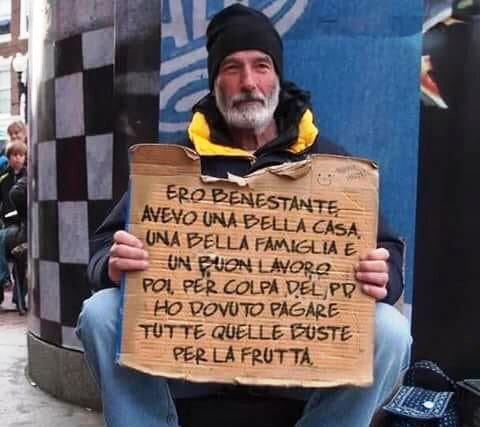 ERO BENESTANTE,
AVEVO UNA BELLA CASA,
UNA BELLA FAMIGLIA E
UN BUON LAVORO
POI, PER COLPA DEL PD,
HO DOVUTO PAGARE
TUTTE QUELLE BUSTE
PER LA FRUTTA.